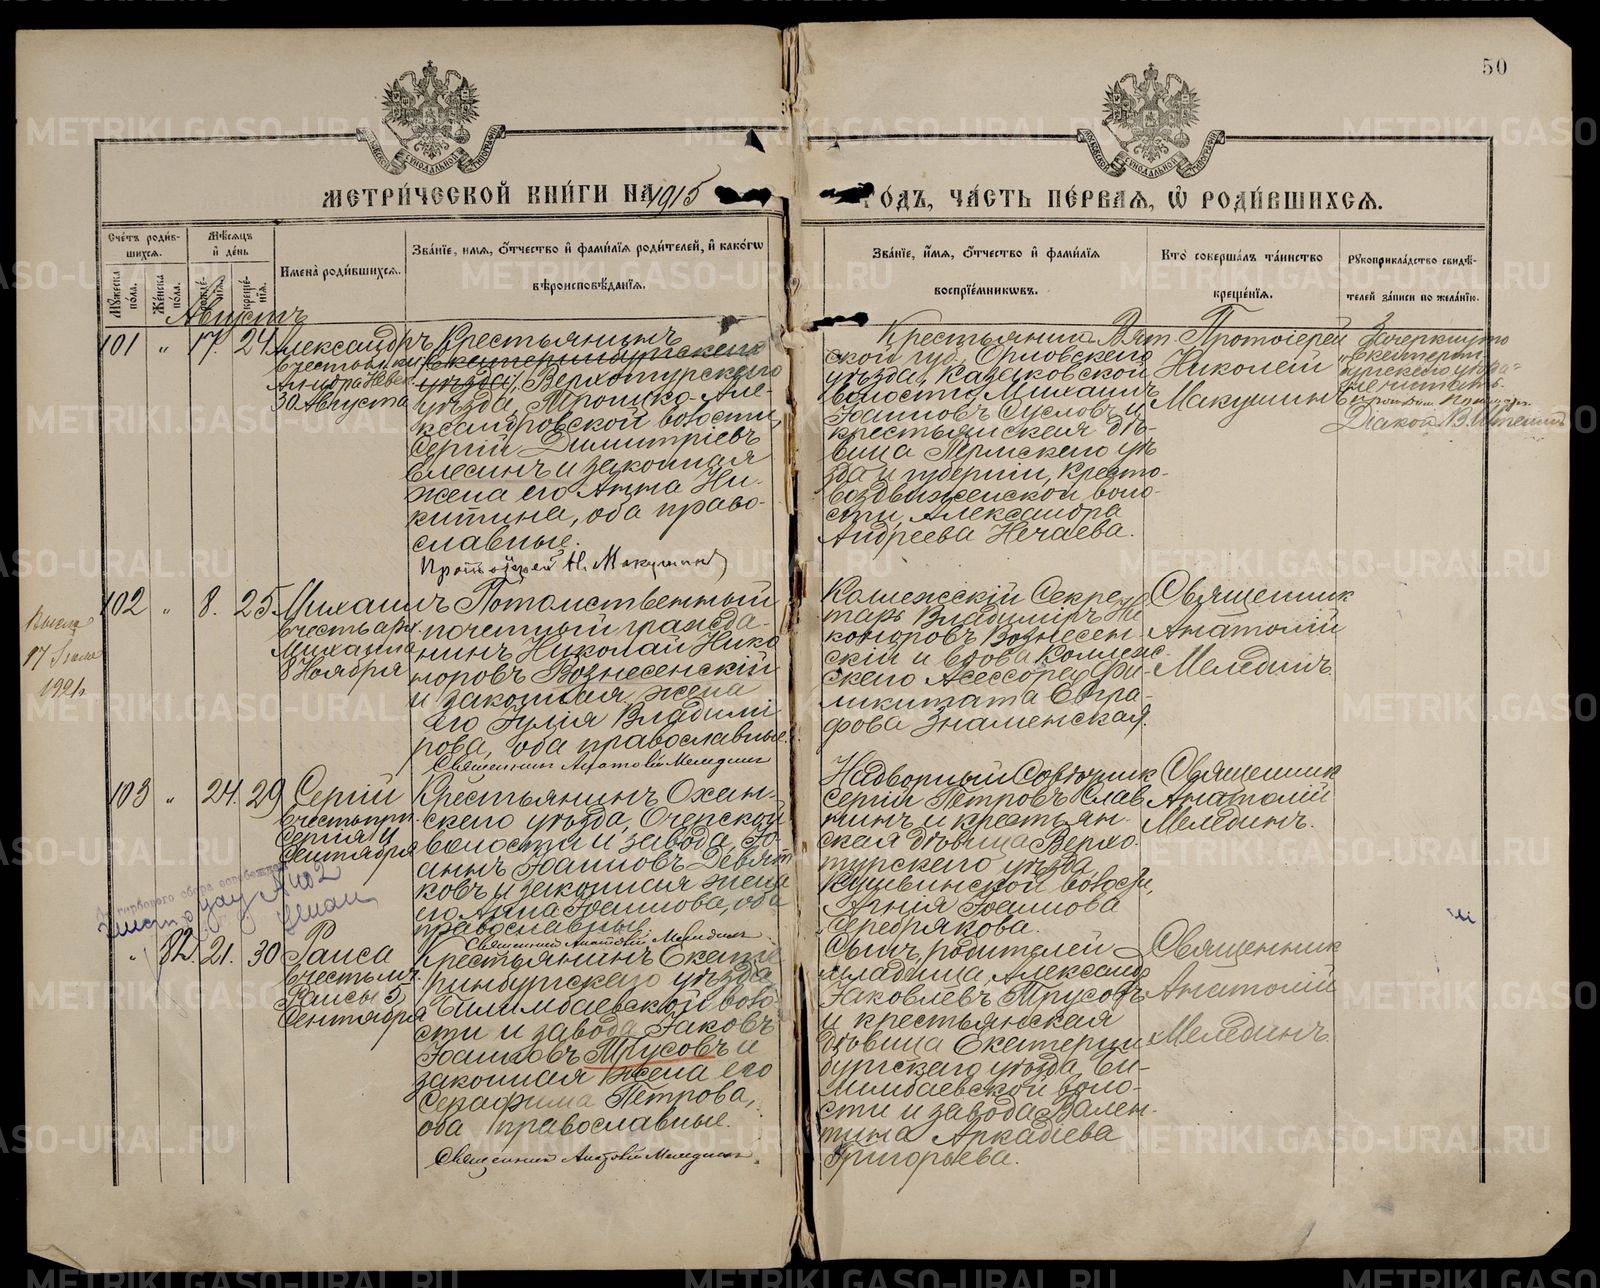 50
МЕТРИ́ЧЕСКОЙ КНИ́ГИ НА 1915
ГОДЪ, ЧА́СТЬ ПЕ́РВАЯ, Ѡ҆ РОДИ́ВШИХСЯ.
Сче́тъ роди́в-
шихся.
Мѣ́сяцъ
и҆ де́нь
Мꙋ́жеска
по́ла.
Же́нска
по́ла.
рожде́-
нїя.
креще́-
нїя.
Имена̀ роди́вшихся.
Зва́нїе, и́мя, о҆́тчество и҆ фами́лїя роди́телей, и҆ како́гѡ
вѣроисповѣ́данїя.
Зва́нїе, и́мя, о҆́тчество и҆ фами́лїя
воспрїе́мникѡвъ.
Кто̀ соверша́лъ та́инство
креще́нїя.
Рꙋкоприкла́дство свидѣ́-
телей за́писи по жела́нїю.
Августъ
101 „ 17. 24
Александръ
въ честь бл. кн.
Александра Невск.
30 Августа
Крестьянинъ
Екатеринбургскаго
уѣзда, Верхотурскаго
уѣзда, Троицко-Але-
ксандровской волости,
Сергій Димитріевъ
Елесинъ и законная
жена его Анна Ни-
китина, оба право-
славные.
Протоіерей Н. Макушинъ
Крестьянинъ Вят-
ской губ., Орловскаго
уѣзда, Казаковской
волости, Михаилъ
Іоанновъ Сусловъ и
крестьянская дѣ-
вица Пермскаго уѣ-
зда и губерніи, Кресто-
воздвиженской воло-
сти, Александра
Андреева Нечаева.
Протоіерей
Николай
Макушинъ
Зачеркнуто
„Екатерин
бургскаго уѣзда"
не читать.
Діаконъ В.
102 „ 8. 25
Михаилъ
въ честь арх.
Михаила
8 Ноября
Потомственный
почетный гражда-
нинъ Николай Нико
норовъ Вознесенскій
и законная жена
его Юлія Владимі
рова, оба православные.
Священникъ Анатолій Мелединъ
Коллежскій Секре-
тарь Владиміръ Ни
коноровъ Вознесен
скій и вдова Коллеж-
скаго Асессора Фи-
ликитата Евгра-
фова Знаменская.
Священникъ
Анатолій
Мелединъ.
17 Іюля
1921 г.
103 „ 24. 29
Сергій
въ честь пр.
Сергія
Сентября
Крестьянинъ Охан-
скаго уѣзда, Очерской
волости и завода, Іо-
аннъ Іоанновъ Девят
ковъ и законная жена
его Анна Іоаннова, оба
православные.
Священникъ Анатолій Мелединъ
Надворный Совѣтник
Сергій Петровъ Слав
нинъ и крестьян-
ская дѣвица Верхо-
турскаго уѣзда,
Кушвинской волости,
Агнія Іоаннова
Серебрякова.
Священникъ
Анатолій
Мелединъ.
„ 82. 21. 30
Раиса
въ честь мч.
Раисы 5
Сентября
Крестьянинъ Екате
ринбургскаго уѣзда
Билимбаевской воло-
сти и завода Іаковъ
Іоанновъ Трусовъ и
законная жена его
Серафима Петрова,
оба православные.
Священникъ Анатолій Мелединъ.
Сынъ родителей
младенца Александр
Іаковлевъ Трусовъ
и крестьянская
дѣвица Екатерин
бургскаго уѣзда, Би-
лимбаевской воло-
сти и завода Вален-
тина Аркадіева
Григорьева.
Священникъ
Анатолій
Мелединъ.